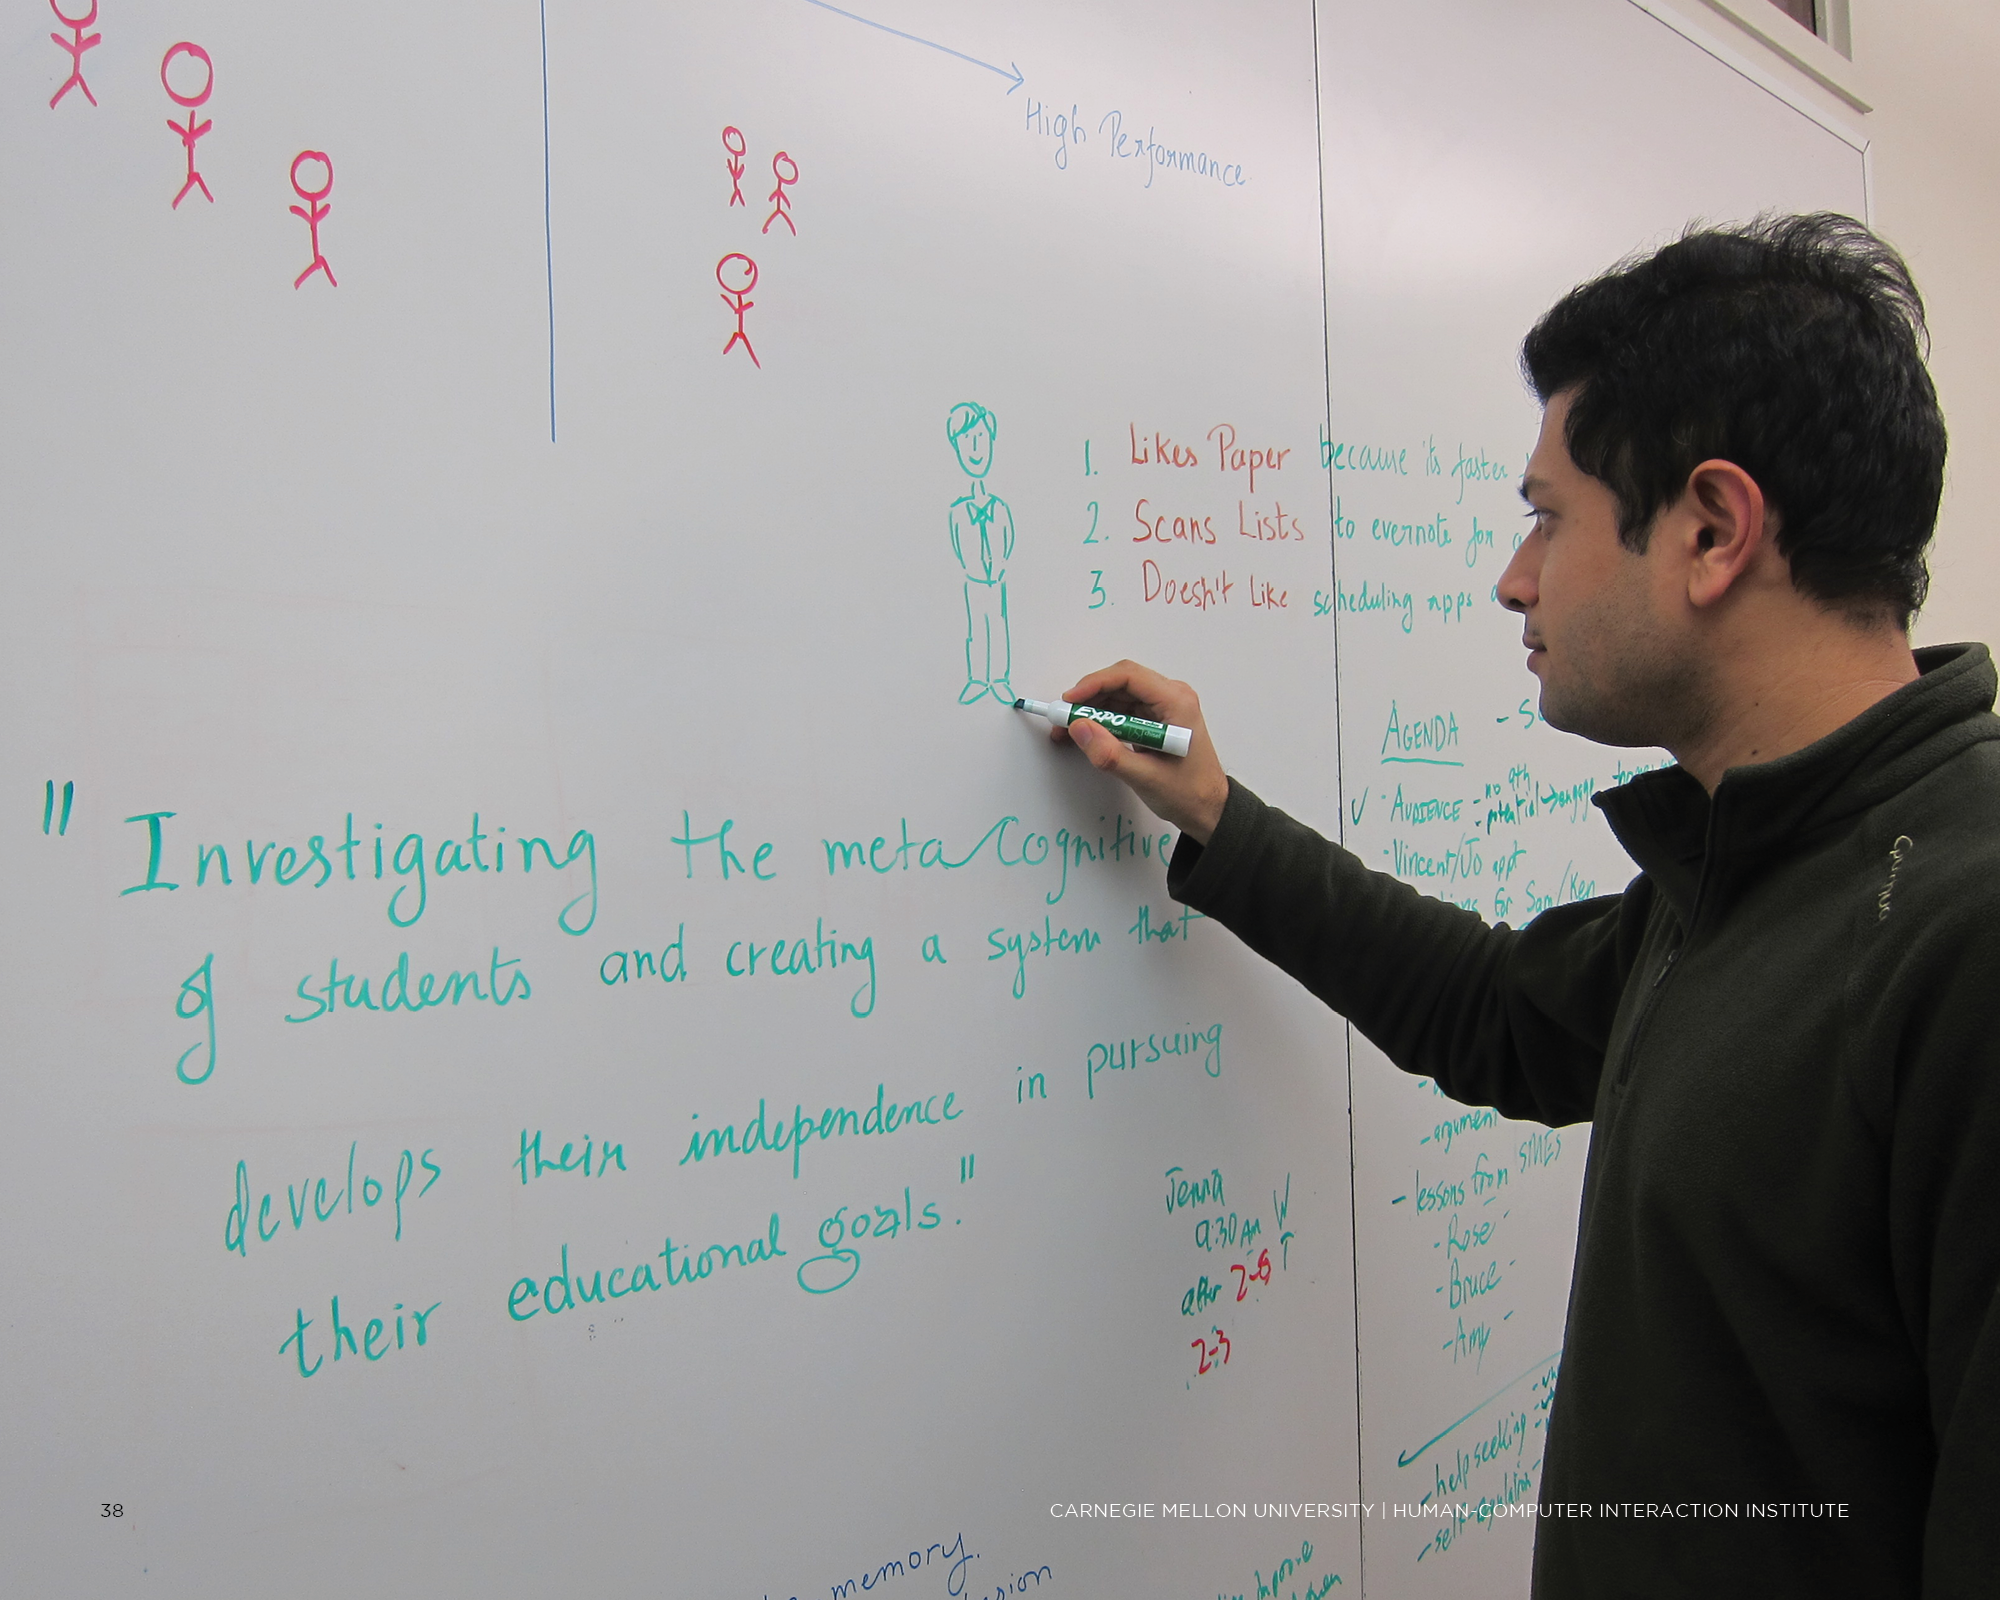 High Performance
1. Likes Paper because its faster
2. Scans Lists to evernote for
3. Doesn't Like scheduling apps
EXPO
AGENDA
✓ · AUDIENCE - no 9th
- potential → engage
- Vincent/Jo appt
for Sam/Ken
" Investigating the meta Cognitive
of students and creating a system that
develops their independence in pursuing
their educational goals."
- argument
- lessons from SMEs
- Rose -
- Bruce -
- Amy -
Jenna
9:30 AM W
after 2-6 T
2-3
- help seeking
- self-regulation
38
CARNEGIE MELLON UNIVERSITY | HUMAN-COMPUTER INTERACTION INSTITUTE
memory.
improve